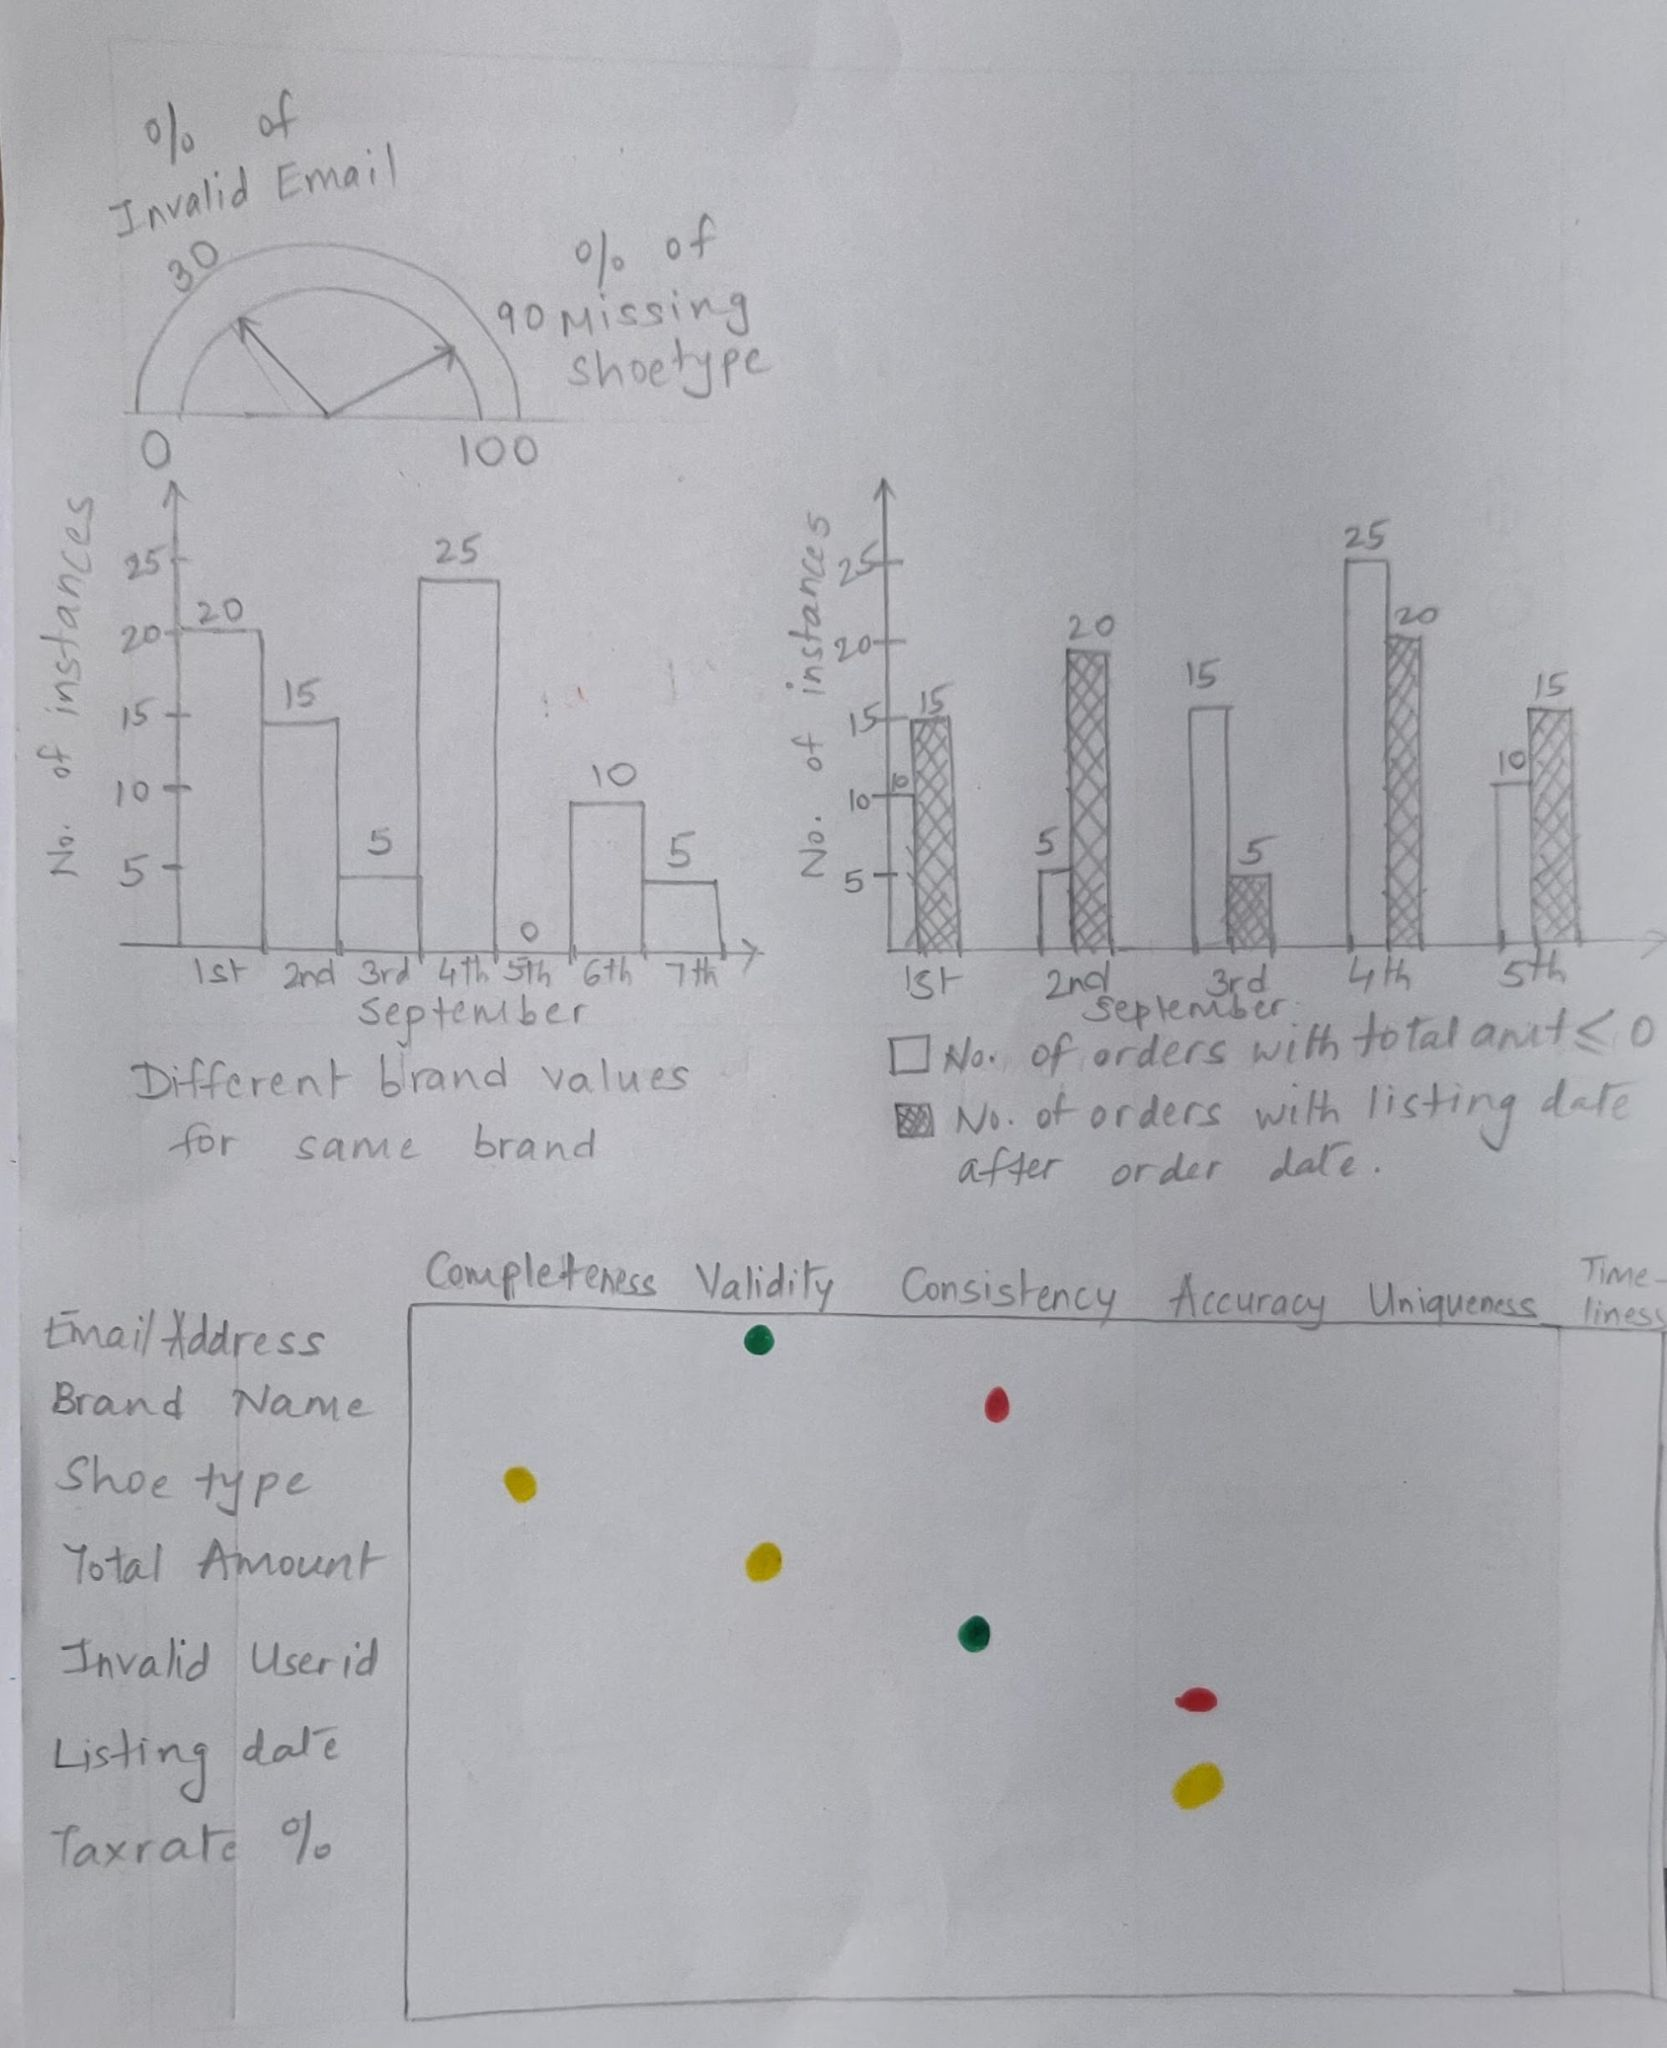 % of
Invalid Email
30
% of
90 Missing
shoetype
0 100
No. of instances
25
20
15
10
5
20
15
5
25
0
10
5
1st 2nd 3rd 4th 5th 6th 7th
September
Different brand values
for same brand
No. of instances
25
20
15
10
5
10
15
5
20
15
5
25
20
10
15
1st 2nd 3rd 4th 5th
September
No. of orders with total amt ≤ 0
No. of orders with listing date
after order date.
Completeness Validity Consistency Accuracy Uniqueness Time-
liness
Email Address
Brand Name
Shoe type
Total Amount
Invalid Userid
Listing date
Taxrate %